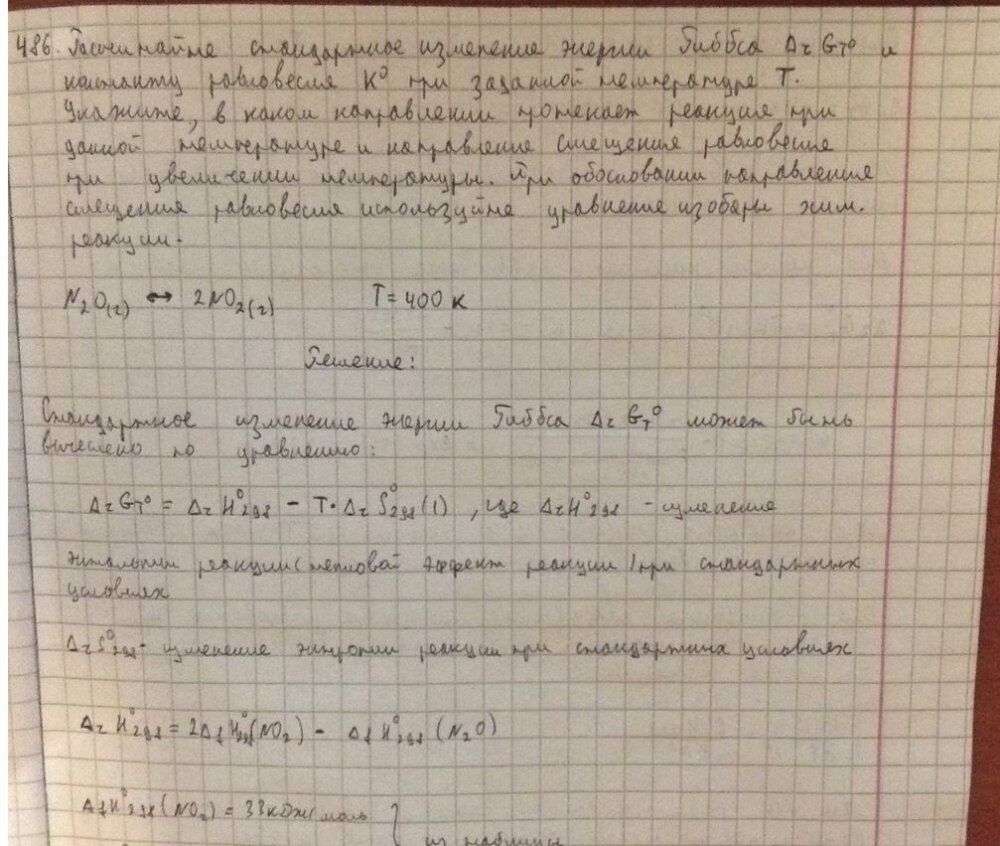 486. Рассчитайте стандартное изменение энергии Гиббса ΔrGT⁰ и
константу равновесия K⁰ при заданной температуре T.
Укажите, в каком направлении протекает реакция при
данной температуре и направление смещения равновесия
при увеличении температуры. При обосновании направления
смещения равновесия используйте уравнение изобары хим.
реакции.
N₂O(г) ↔ 2NO₂(г) T = 400 К
Решение:
Стандартное изменение энергии Гиббса ΔrGT⁰ может быть
вычислено по уравнению:
ΔrGT⁰ = ΔrH⁰₂₉₈ − T·ΔrS⁰₂₉₈ (1), где ΔrH⁰₂₉₈ - изменение
энтальпии реакции (тепловой эффект реакции) при стандартных
условиях
ΔrS⁰₂₉₈ - изменение энтропии реакции при стандартных условиях
ΔrH⁰₂₉₈ = 2ΔfH⁰₂₉₈(NO₂) − ΔfH⁰₂₉₈(N₂O)
ΔfH⁰₂₉₈(NO₂) = 33 кДж/моль }
из таблицы